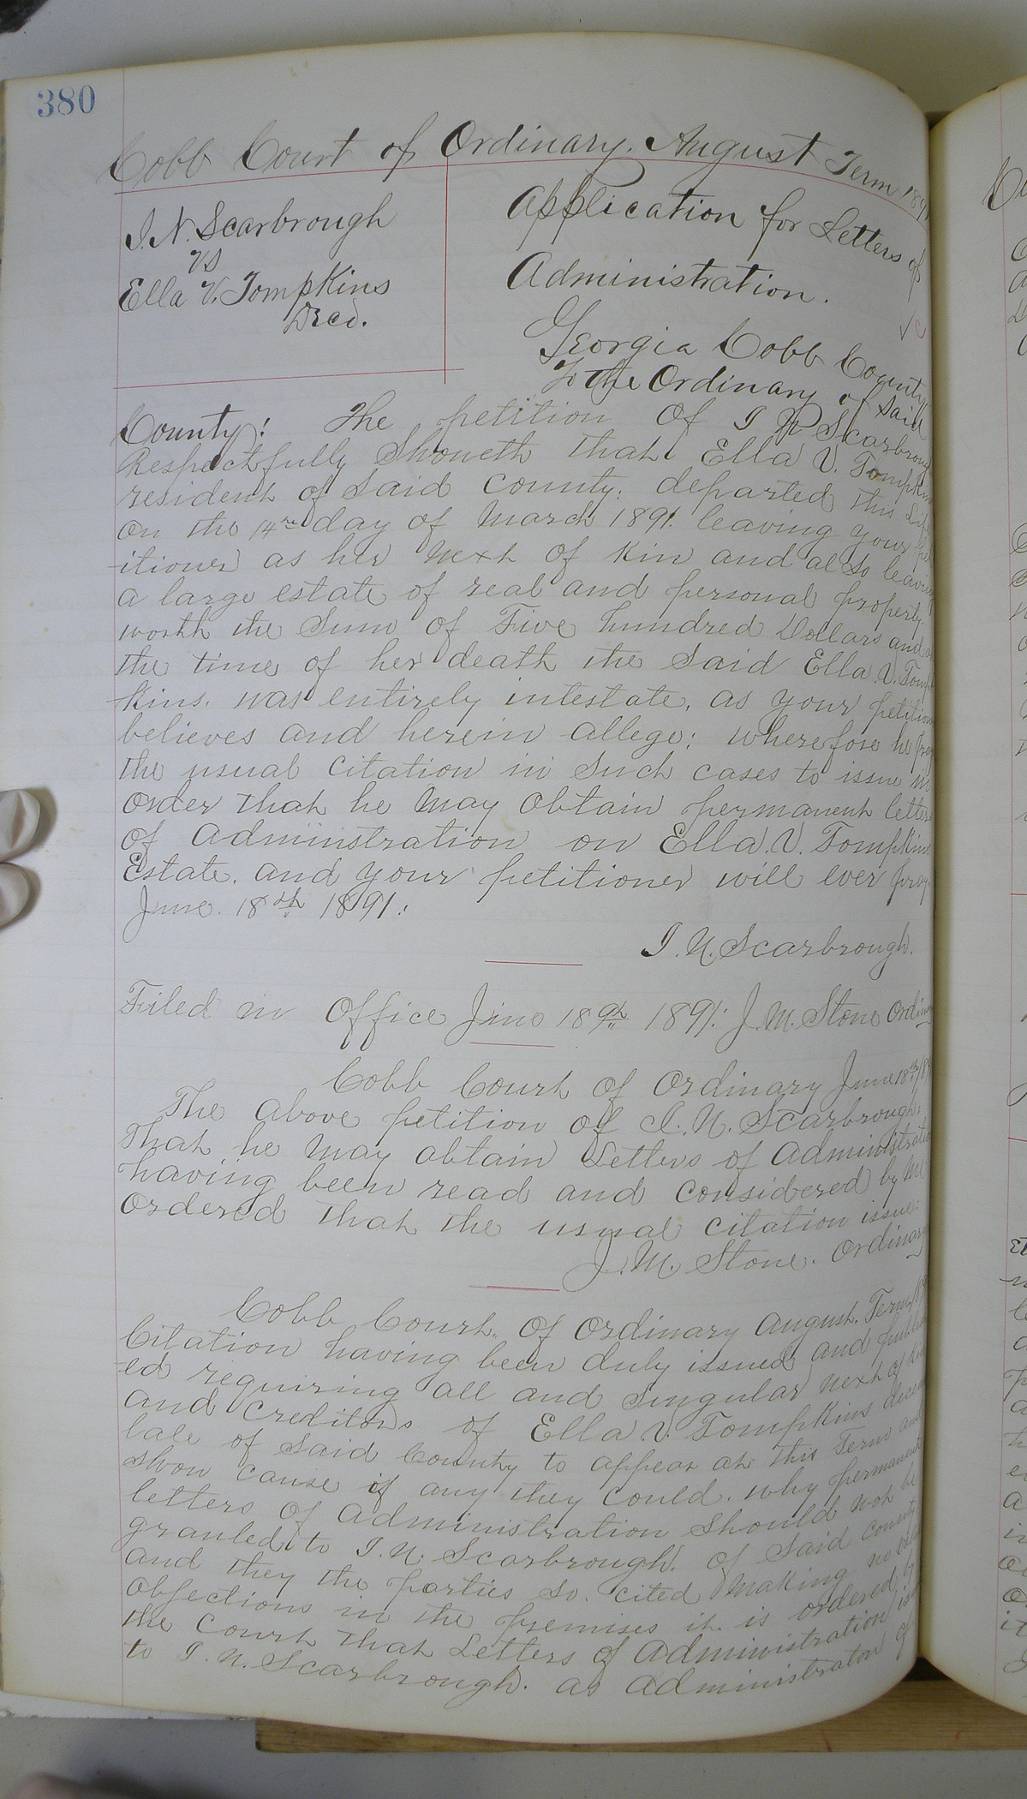 380
Cobb Court of Ordinary. August Term 189
I. N. Scarbrough
vs
Ella V. Tompkins
Decd.
Application for Letters of
Administration.
Georgia Cobb County
To the Ordinary of Said
County: The petition of I N Scarbroug
Respectfully Showeth that Ella V. Tompkin
resident of Said County. departed this Life
on the 14th day of March 1891. leaving your pet
-itioner as her Next of Kin and also leaving
a large estate of real and personal property
worth the Sum of Five hundred Dollars and at
the time of her death the Said Ella. V. Tomp
-kins. was entirely intestate, as your petition
believes and herein allege: wherefore he pray
the usual Citation in Such cases to issue in
order that he May Obtain permanent letters
of administration on Ella. V. Tompkins
Estate. and your petitioner will ever pray
June. 18th 1891:
I. N. Scarbrough.
Filed in Office June 18th 1891: J. M. Stone Ordin
Cobb Court of Ordinary June 18th 18
The above petition of I. N. Scarbrough.
That he May obtain Letters of Administratio
having been read and Considered by Me
Ordered that the usual citation issue.
J. M. Stone. Ordinary
Cobb Court. Of Ordinary August. Term 18
Citation having been duly issued and publish
-ed requiring all and Singular next of Kin
and Creditors of Ella V. Tompkins decea
late of Said County to appear at this Term and
Show cause if any they Could. why permanent
letters of administration Should not be
granted to I. N. Scarbrough. of Said County
and they the parties So. cited Making no
objections in the premises it is ordered by
the Court that Letters of administration
to I. N. Scarbrough. as administrator of